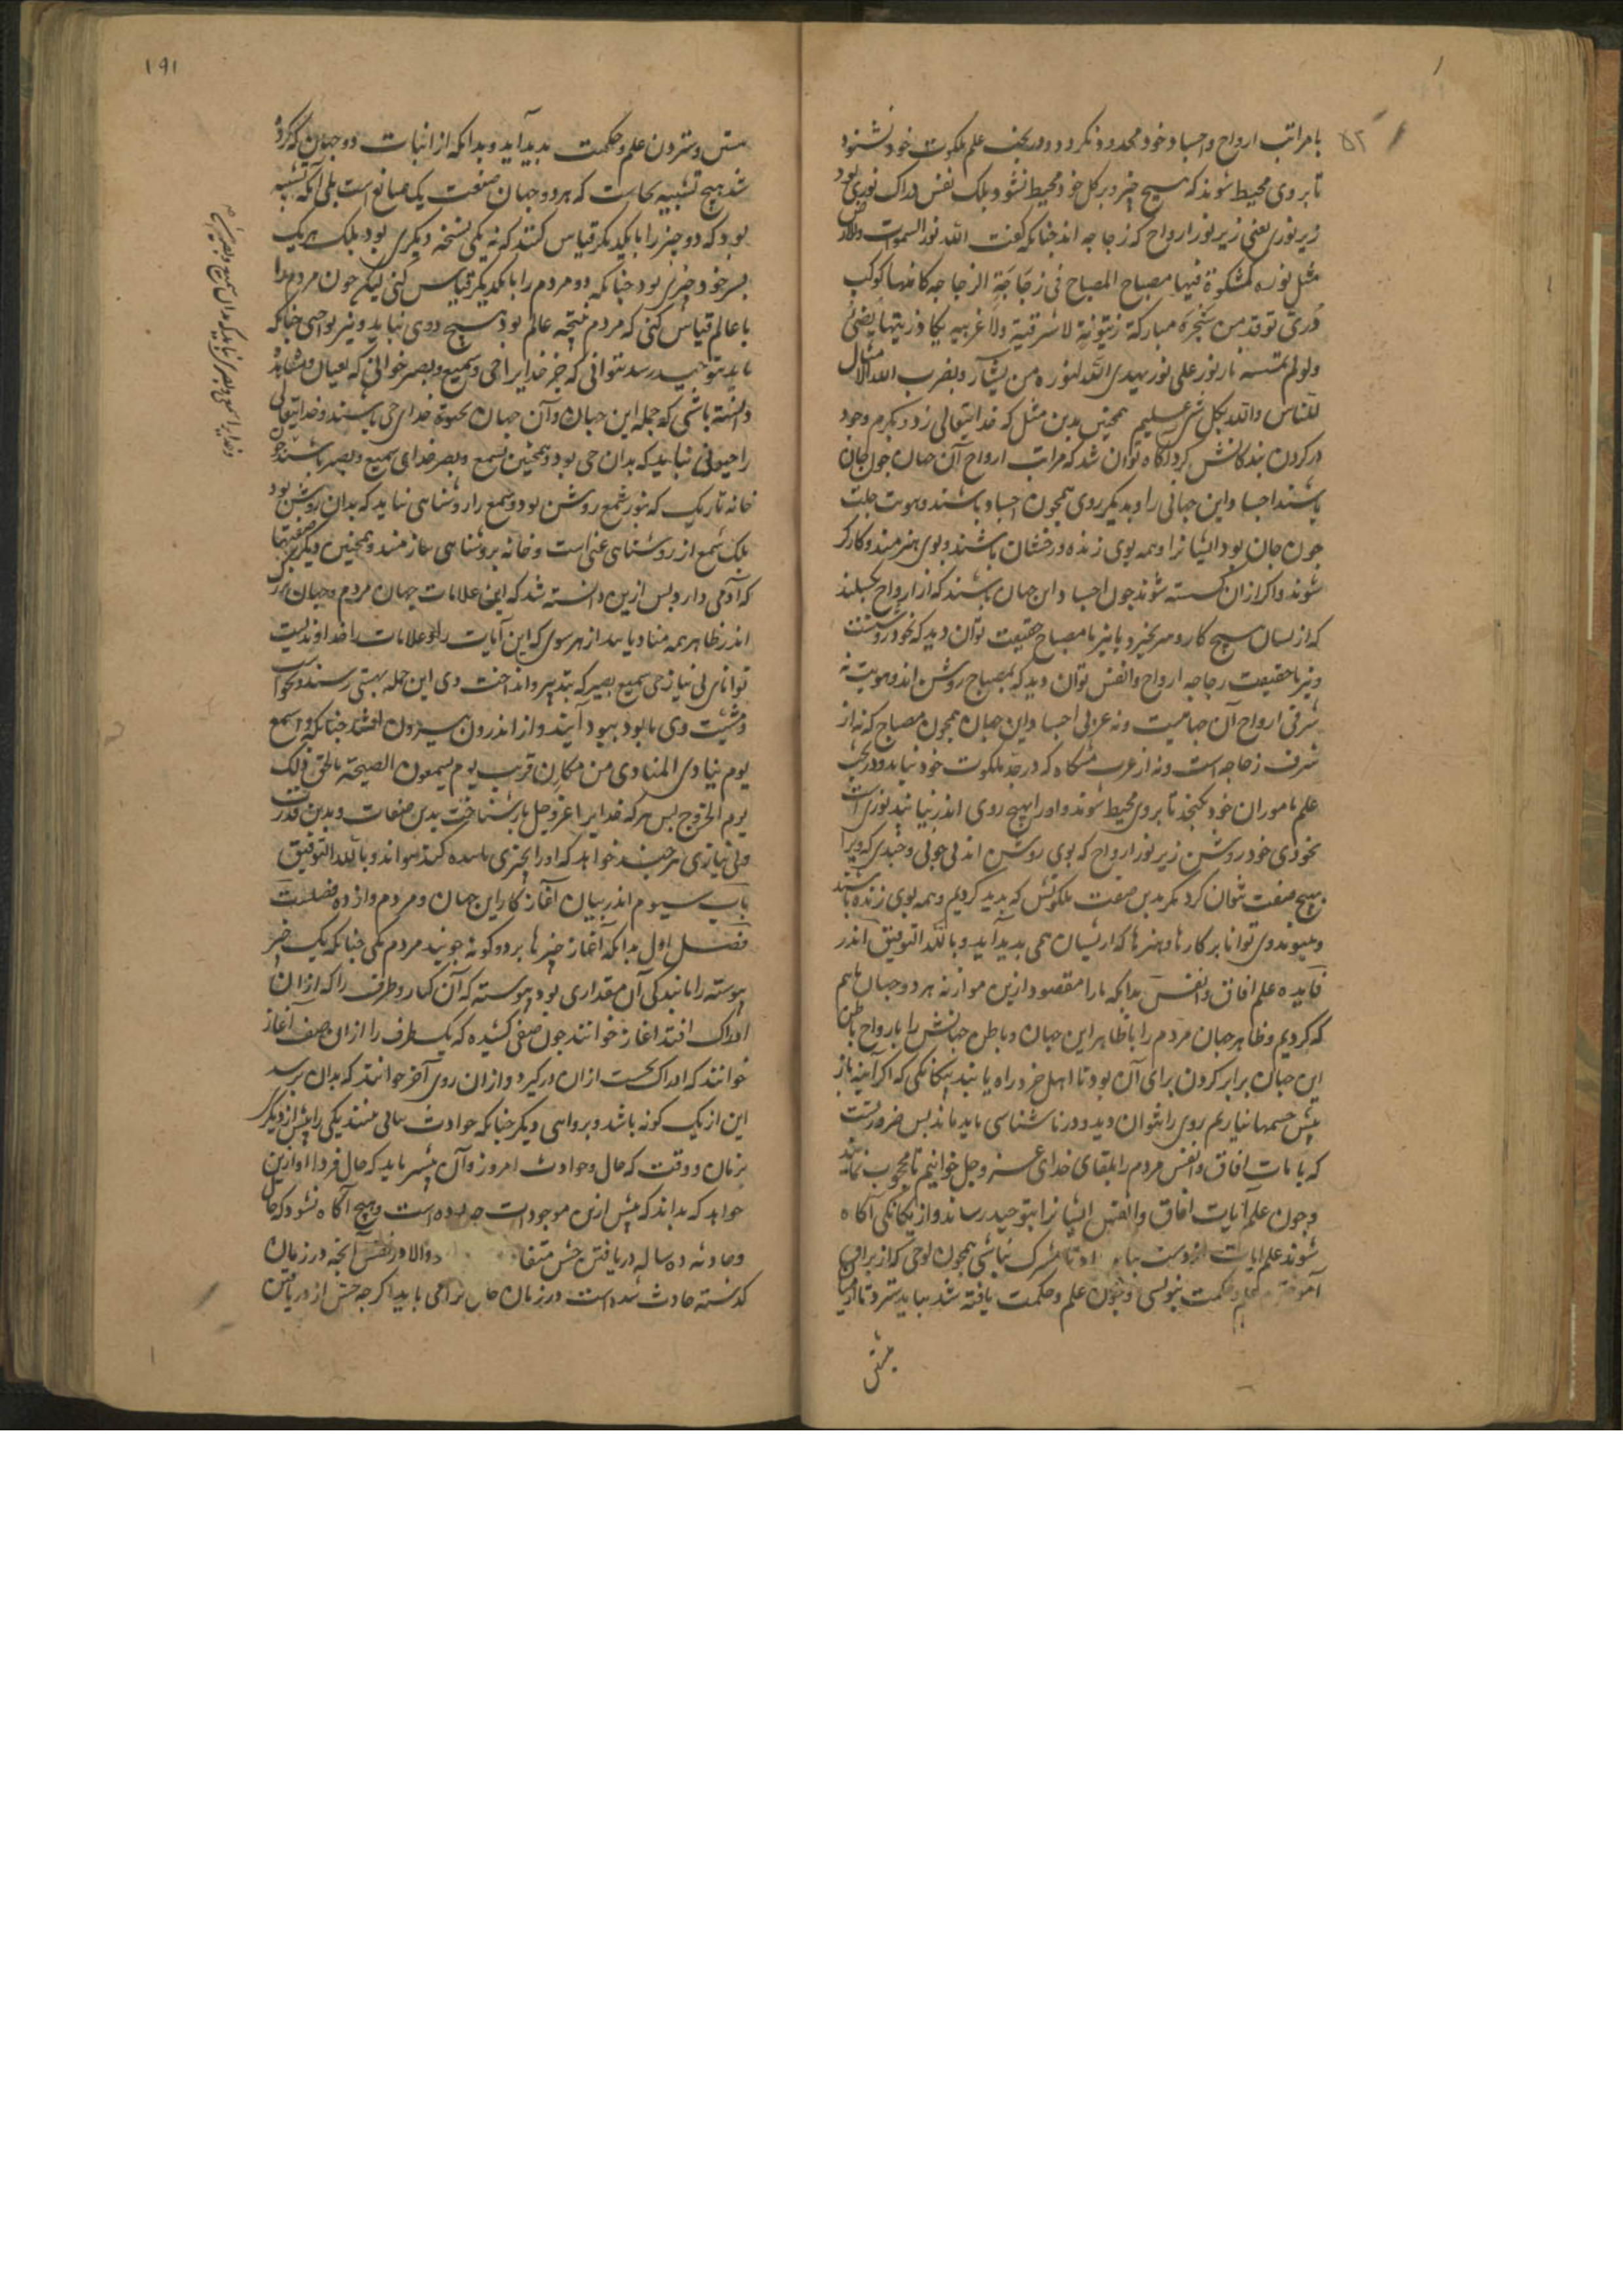 با مراتب ارواح و اجساد خود محدود نکردد و در بحث علم ملکوت خود نشنود
تا بروی محیط شوند که هیچ چیز در برکل خود محیط نشود بلک نفس دراک نوری بود
زیر نوری یعنی زیر نور ارواح که زجاجه اند جنانکه کفت الله نور السموات والارض
مثل نوره کمشکوة فیها مصباح المصباح فی زجاجة الزجاجه کانها کوکب
دری توقد من شجرة مبارکة زیتونة لا شرقیة ولا غربیه یکاد زیتها یضیٔ
ولو لم تمسسه نار نور علی نور یهدی الله لنوره من یشآء ویضرب الله الامثال
للناس والله بکل شیٔ علیم همجنین بدین مثل که خدایتعالی زد در مکرم وجود
در کردن بندکانش کرد آکاه توان شد که مراتب ارواح آن جهان جون جان
باشند اجساد این جهانی را و بدیکر روی همجون اجساد باشند و هویت جلت
جون جان بود ایشانرا و همه بوی زنده و رخشان باشند و بوی هنرمند و کارکر
شوند و اکر ازان کسسته شوند جون اجساد این جهان باشند که از ارواح بکسلند
که از بسان هیچ کار و هنر نخیزد با نیز با مصباح حقیقت توان دید که بخود روشنست
و نیز با حقیقت زجاجه ارواح و انفس توان دید که بمصباح روشن اند و هویت نه
شرقی ارواح آن جهانیست و نه غربی اجساد این جهان همجون مصباح که نه از
شرق زجاجه است و نه از غرب مشکاه که در حد ملکوت خود نیاید و در بحث
علم ماموران خود نکنجد تا بروی محیط شوند و او را بهیچ روی اندر نیابند نوری است
بخودی خود روشن زیر نور ارواح که بوی روشن اند بی جونی و جندی که ویرا
بهیچ صفت نتوان کرد مکر بدین صفت ملکوتش که پدید کردیم و همه بوی زنده باشند
و بپیوند وی توانا بر کارها و هنرها که ازیشان همی پدید آید و بالله التوفیق اندر
فایده علم افاق و انفس بدانکه ما را مقصود ازین موازنه هر دو جهان باهم
که کردیم و ظاهر جهان مردم را با ظاهر این جهان و باطن جهانش را بارواح باطن
این جهان برابر کردن برای آن بود تا اهل خرد راه یابند بیکانکی که اکر آینه باز
پیش جسمها نیاریم روی را نتوان دید و در ناشناسی باید ماند بس ضرورتست
که بایات افاق و انفس مردم را بلقای خدای عز و جل خوانیم تا محجوب نمانند
و جون علم آیات افاق و انفس ایشانرا بتوحید رساند و از یکانکی آکاه
شوند علم ایات تا مشرک نباشی همجون لوحی که از برای
علم و حکمت بنویسی و جون علم و حکمت یافته شد بباید سترد تا از
۵۲
بشتن
۱۹۱
بشتن و ستردن علم و حکمت پدید آید و بدانکه از اثبات دو جهان که کرده
شد هیچ تشبیه بجاست که هر دو جهان صنعت یک صانع است بلی آنکه تشبیه
بود که دو چیز را بایکدیکر قیاس کنند که نه یکی نسخه دیکری بود بلک هر یک
بسر خود چیزی بود جنانکه دو مردم را بایکدیکر قیاس کنی لیکن جون مردم را
با عالم قیاس کنی که مردم نتیجه عالم بود هیچ دوی نیاید و نیز بواجبی جنانکه
باید بتوحید رسد نتوانی که جز خدایرا حی و سمیع و بصیر خوانی که بعیان و مشاهده
دانسته باشی که جمله این جهان و آن جهان بحیوة خدای حی باشند و خدایتعالی
را حیوتی نباید که بدان حی بود و همجنین بسمع و بصر خدای سمیع و بصیر باشند جون
خانه تاریک که بنور شمع روشن بود و شمع را روشنایی نباید که بدان روشن بود
بلک شمع از روشنایی غنی است و خانه بروشنایی نیازمند و همجنین دیکر صفتها
که آدمی دارد بس ازین دانسته شد که این علامات جهان مردم و جهان بزرک
اندر ظاهر همه منادیانند از هر سوی که این آیات را و علامات را خداوندیست
توانای بی نیاز حی سمیع بصیر که بتدبیر و انداخت وی این جمله بهستی رسند و بخواست
و مشیت وی نابود ببود آیند و از اندرون بیرون افتند جنانکه واسمع
یوم ینادی المنادی من مکان قریب یوم یسمعون الصیحة بالحق ذلک
یوم الخروج بس هر که خدایرا عز و جل باز شناخت بدین صفات و بدین قدرت
و بی نیازی هرجند خواهد که او را بچیزی ماننده کند نتواند و بالله التوفیق
باب سیوم اندر بیان آغاز کار این جهان و مردم و از ده فصلست
فصل اول بدانکه آغاز چیزها بر دو کونه جویند مردم یکی جنانکه یک چیز
پیوسته را مانند کی آن مقداری بود پیوسته که آن کنار و طرف را که ازان
ادراک افتد اغاز خوانند جون صفی کشیده که یک طرف را ازان صف آغاز
خوانند که ادراک نخست ازان درکیرد و ازان روی آخر خوانند که بدان برسد
این از یک کونه باشد و بر وجهی دیکر جنانکه حوادث سالی بینند یکی را پیش از دیکر
بزمان و وقت که حال و حوادث امروز و آن پیشتر یابد که حال فردا او ازین
خواهد که بداند که پیش ازین موجودات جه بوده است و هیچ آکاه نشود که حال
و حادثه ده ساله دریافتن حس و الا در نفس آنجه در زمان
کذشته حادث شده است در زمان حال نمی یابد اکرجه حس از دریافتن